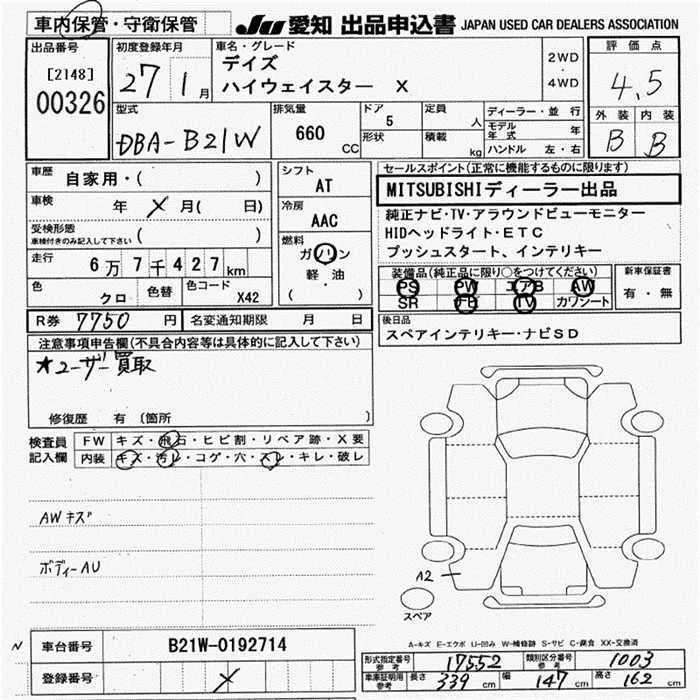 車内保管・守衛保管
JU 愛知 出品申込書 JAPAN USED CAR DEALERS ASSOCIATION
出品番号
[2148]
00326
初度登録年月
27 1月
車名・グレード
デイズ
ハイウェイスター X
2WD
・
4WD
評価点
4.5
外装 内装
B B
型式
DBA-B21W
排気量
660 CC
ドア
5
形状
定員
人
積載
kg
ディーラー・並行
モデル年式 年
ハンドル 左・右
車歴
自家用・( )
車検 年 メ月( 日)
受検形態
車検付きのみ記入して下さい ( )
走行
6万7千427km
色
クロ
色替
色コード
X42
シフト
AT
冷房
AAC
燃料
ガソリン
軽・油
( ・ )
セールスポイント(正常に機能するものに限ります)
MITSUBISHIディーラー出品
純正ナビ・TV・アラウンドビューモニター
HIDヘッドライト・ETC
プッシュスタート、インテリキー
装備品(純正品に限り○をつけてください)
PS PW エアB AW
SR ナビ TV カワシート
新車保証書
有・無
R券 7750円 名変通知期限 月 日
後日品
スペアインテリキー・ナビSD
注意事項申告欄(不具合内容等は具体的に記入して下さい)
★ユーザー買取
修復歴 有 〔箇所 〕
検査員
記入欄
FW キズ・飛石・ヒビ割・リペア跡・X要
内装 キズ・汚レ・コゲ・穴・スレ・キレ・破レ
AWキズ
ボディーAU
A2
スペア
A-キズ E-エクボ U-凹み W-補修跡 S-サビ C-腐食 XX-交換済
N
車台番号 B21W-0192714
登録番号 メ
形式指定番号参考 17552 類別区分番号参考 1003
車庫証明用参考 長さ 339cm 幅 147cm 高さ 162cm